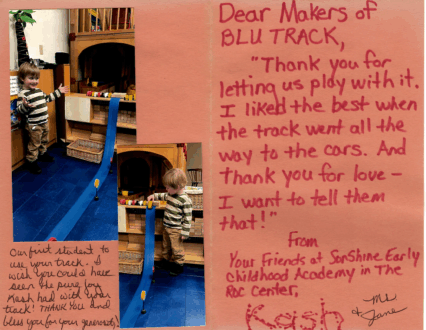 Dear Makers of
BLU TRACK,
"Thank you for
letting us play with it.
I liked the best when
the track went all the
way to the cars. And
thank you for love –
I want to tell them
that!"
From
Your Friends at SonShine Early
Childhood Academy in The
Roc Center,
Kash
Ms
& Jane
Our first student to
use your track. I
wish you could have
seen the pure joy
Kash had with your
track! THANK YOU and
bless you for your generosity!